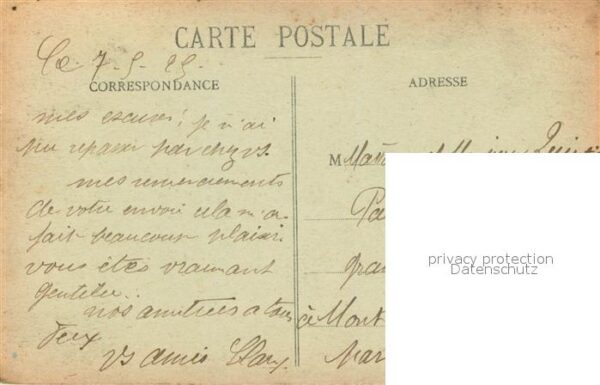 CARTE POSTALE
Le 7-9-25.
CORRESPONDANCE
ADRESSE
mes excuses! je n'ai
pu repasser par chez vs.
mes remerciements
de votre envoi cela m'a
fait beaucoup plaisir.
vous êtes vraiment
gentille..
nos amitiées a tous
deux
vs amis
M
Pa
à Mont
privacy protection
Datenschutz